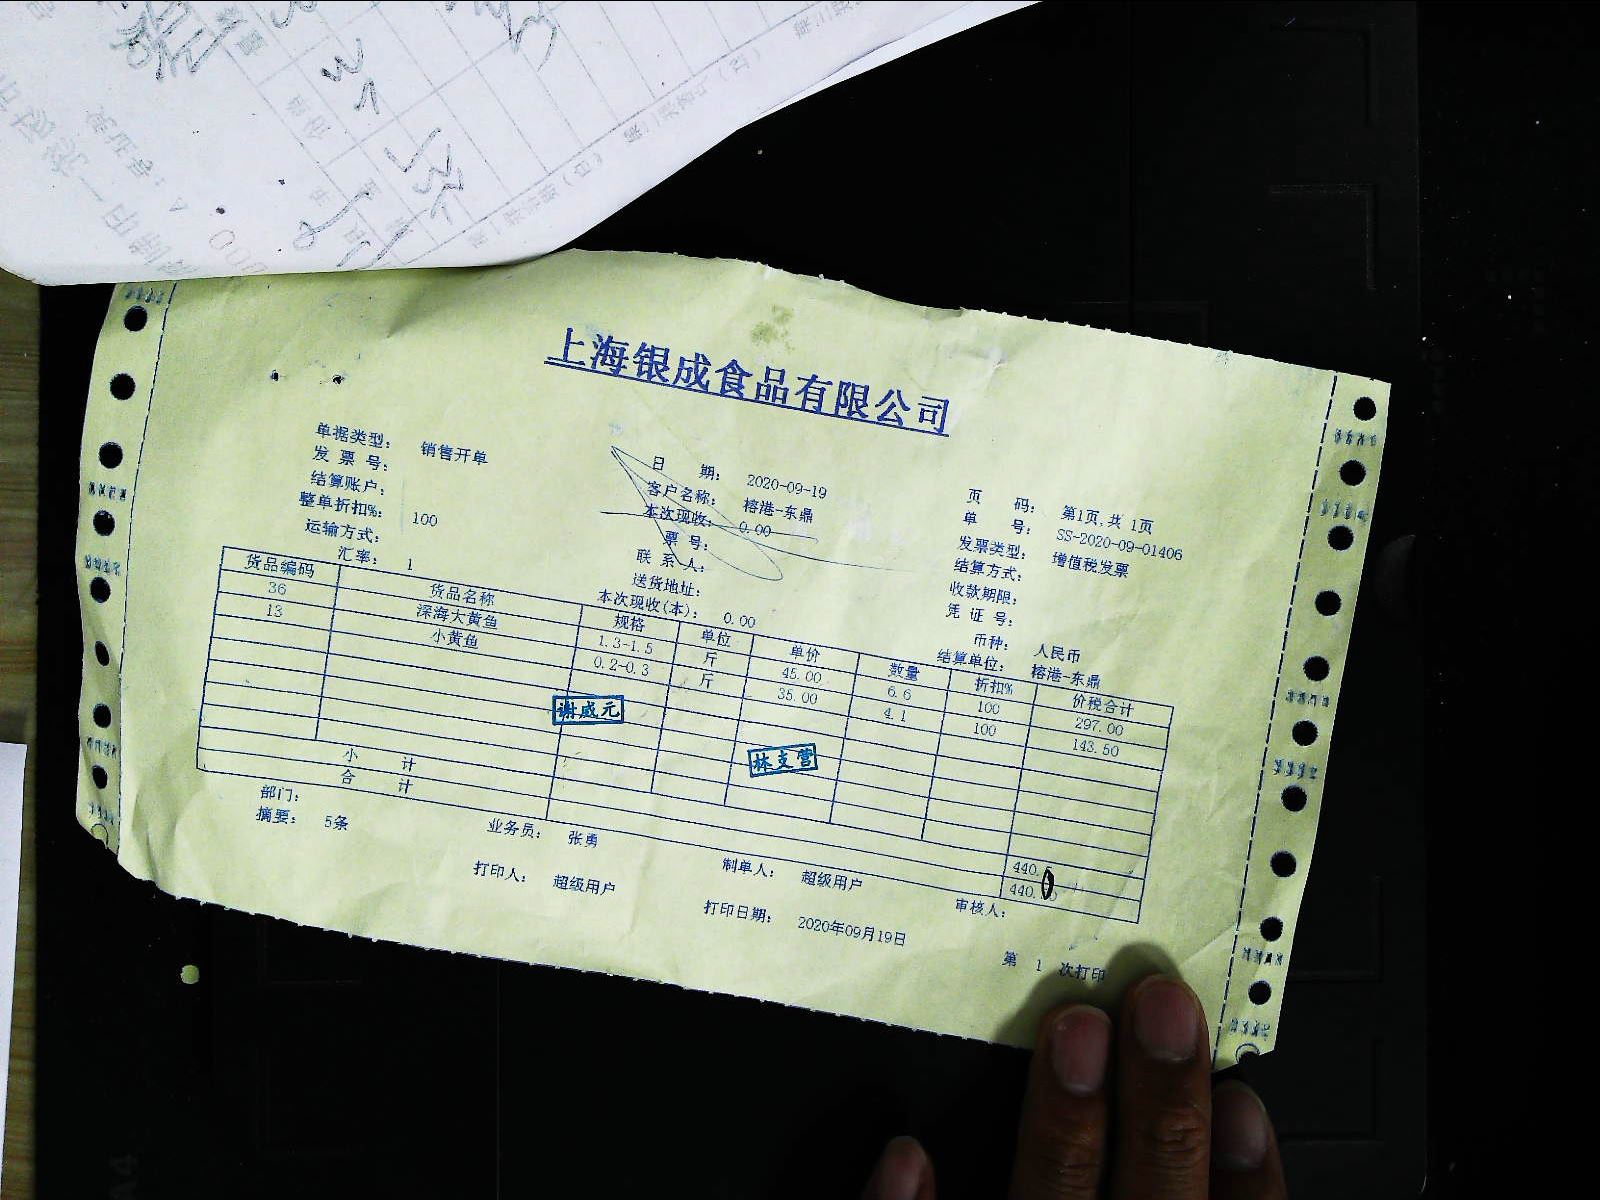 上海银成食品有限公司
单据类型： 销售开单
发票号：
结算账户：
整单折扣%： 100
运输方式：
汇率： 1
日 期： 2020-09-19
客户名称： 榕港-东鼎
本次现收： 0.00
票号：
联系人：
送货地址：
本次现收(本)： 0.00
页 码： 第1页,共 1页
单 号： SS-2020-09-01406
发票类型： 增值税发票
结算方式：
收款期限：
凭证号：
币种： 人民币
结算单位： 榕港-东鼎
货品编码 货品名称 规格 单位 单价 数量 折扣% 价税合计
36 深海大黄鱼 1.3-1.5 斤 45.00 6.6 100 297.00
13 小黄鱼 0.2-0.3 斤 35.00 4.1 100 143.50
谢威元
林支营
小 计 440.
合 计 440.
部门：
摘要： 5条
业务员： 张勇
制单人： 超级用户
审核人：
打印人： 超级用户
打印日期： 2020年09月19日
第 1 次打印